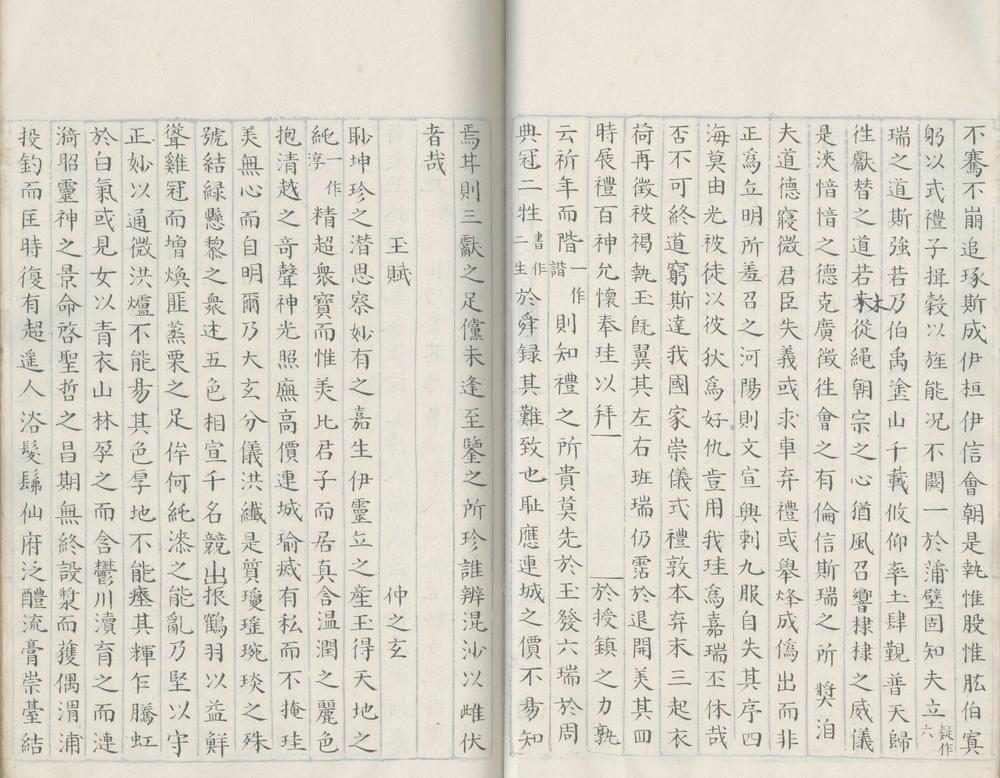 不騫不崩追琢斯成伊桓伊信會朝是執惟股惟肱伯寅
躬以式禮子揖穀以旌能况不闕一於蒲璧固知夫立疑作六
瑞之道斯強若乃伯禹塗山千載攸仰率土肆覲普天歸
徃獻替之道若木從繩朝宗之心猶風召響棣棣之威儀
是浹愔愔之德克廣徵徃會之有倫信斯瑞之所奬洎
夫道德寢微君臣失義或求車弃禮或舉烽成偽出而非
正為立明所羞召之河陽則文宣興刺九服自失其序四
海莫由光被徒以彼狄為好仇豈用我珪為嘉瑞丕休哉
否不可終道窮斯達我國家崇儀式禮敦本弃末三起衣
荷再徵被褐執玉旣翼其左右班瑞仍霑於退開美其四
時展禮百神允懷奉珪以拜 於授鎮之力孰
云祈年而階一作諧則知禮之所貴莫先於玉發六瑞於周
典冠二牲書作二生於舜録其難致也耻應連城之價不昜知
焉其則三獻之足儻未逢至鑒之所珍誰辨混沙以雌伏
者哉
玉賦 仲之玄
眇坤珍之潛思察妙有之嘉生伊靈立之產玉得天地之
純一作淳精超衆寳而惟美比君子而居真含溫潤之麗色
抱清越之奇聲神光照廡高價連城瑜瑊有私而不掩珪
美無心而自明爾乃大玄分儀洪纎是質瓊瑤琬琰之殊
號結緑懸黎之衆迬五色相宣千名競出振鶴羽以益鮮
聳雞冠而增煥匪蒸栗之足侔何純漆之能亂乃堅以守
正妙以通微洪爐不能昜其色厚地不能瘞其輝乍騰虹
於白氣或見女以青衣山林孕之而含鬱川瀆育之而漣
漪昭靈神之景命啓聖哲之昌期無終設漿而獲偶渭浦
投釣而匡時復有超遥人浴髮髴仙府泛醴流膏崇臺結